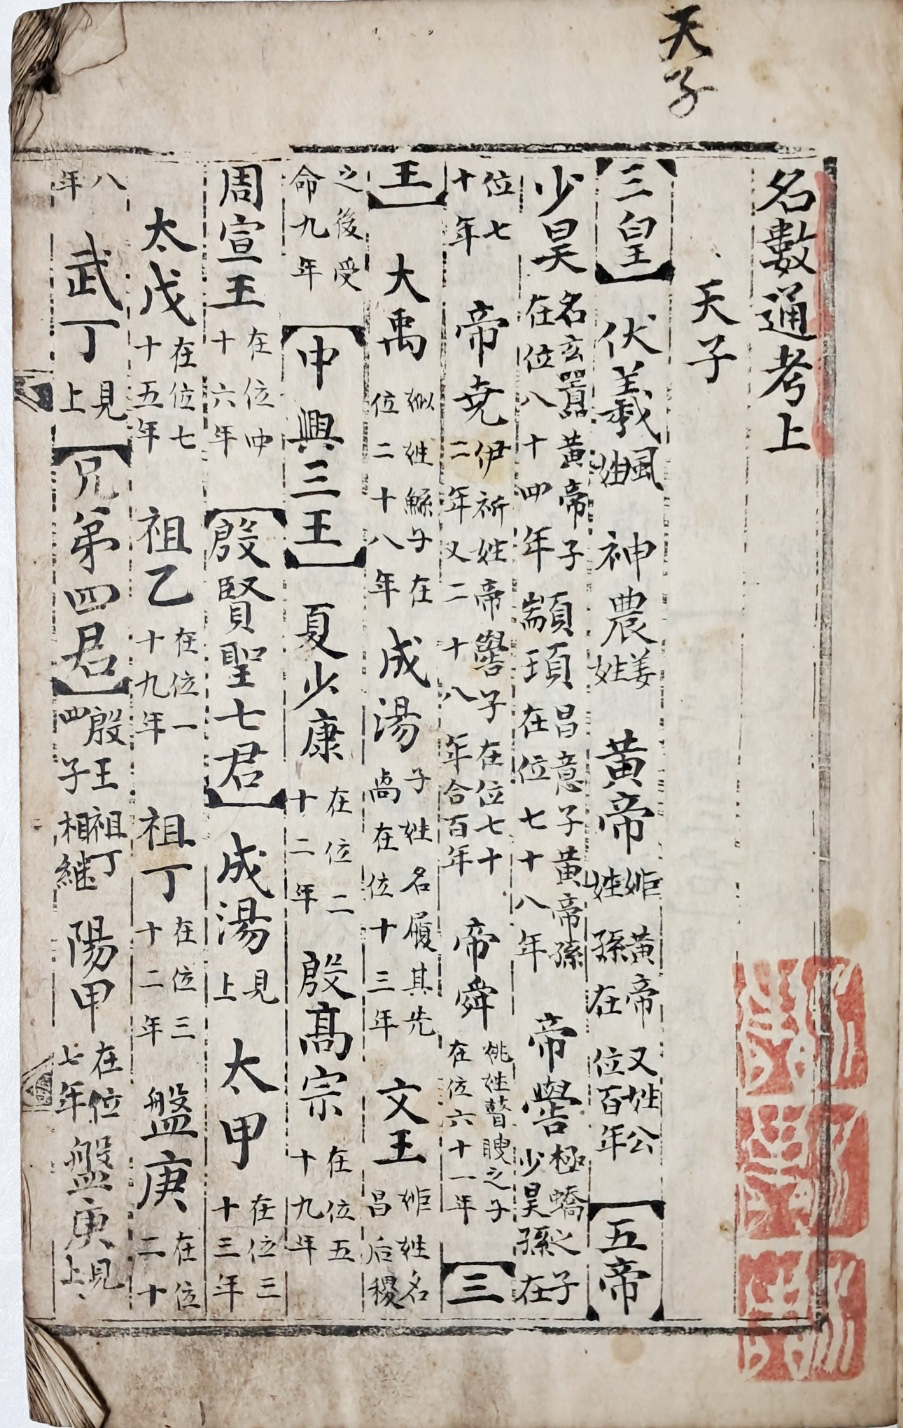 天子
名數通考上
天子
【三皇】 伏羲 風姓 神農 姜姓 黃帝 姬姓 黃帝又姓公孫在位百年 【五帝】
少昊 名玄囂黃帝子在位八十四年 顓頊 昌意子黃帝孫在位七十八年 帝嚳 極蟜之子少昊孫在
位七十年 帝堯 伊祈姓帝嚳子在位七十二年又二十八年合百年 帝舜 姚姓瞽瞍之子在位六十一年 【三
王】 大禹 姒姓鯀子在位二十八年 成湯 子姓名履其先卨在位十三年 文王 姬姓名昌后稷
之後受命九年 【中興三王】 夏少康 在位二十二年 殷高宗 在位五十九年
周宣王 在位四十六年 【殷賢聖七君】 成湯 見上 太甲 在位三十三年
太戊 在位七十五年 祖乙 在位一十九年 祖丁 在位三十二年 盤庚 在位二十
八年 武丁 見上 【兄弟四君】 殷王祖丁四子相継 陽甲 在位七年 盤庚 見上